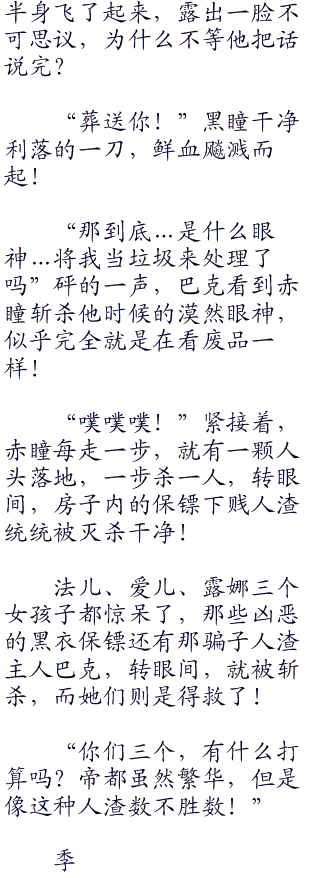 半身飞了起来，露出一脸不
可思议，为什么不等他把话
说完？
“葬送你！”黑瞳干净
利落的一刀，鲜血飚溅而
起！
“那到底…是什么眼
神…将我当垃圾来处理了
吗”砰的一声，巴克看到赤
瞳斩杀他时候的漠然眼神，
似乎完全就是在看废品一
样！
“噗噗噗！”紧接着，
赤瞳每走一步，就有一颗人
头落地，一步杀一人，转眼
间，房子内的保镖下贱人渣
统统被灭杀干净！
法儿、爱儿、露娜三个
女孩子都惊呆了，那些凶恶
的黑衣保镖还有那骗子人渣
主人巴克，转眼间，就被斩
杀，而她们则是得救了！
“你们三个，有什么打
算吗？帝都虽然繁华，但是
像这种人渣数不胜数！”
季